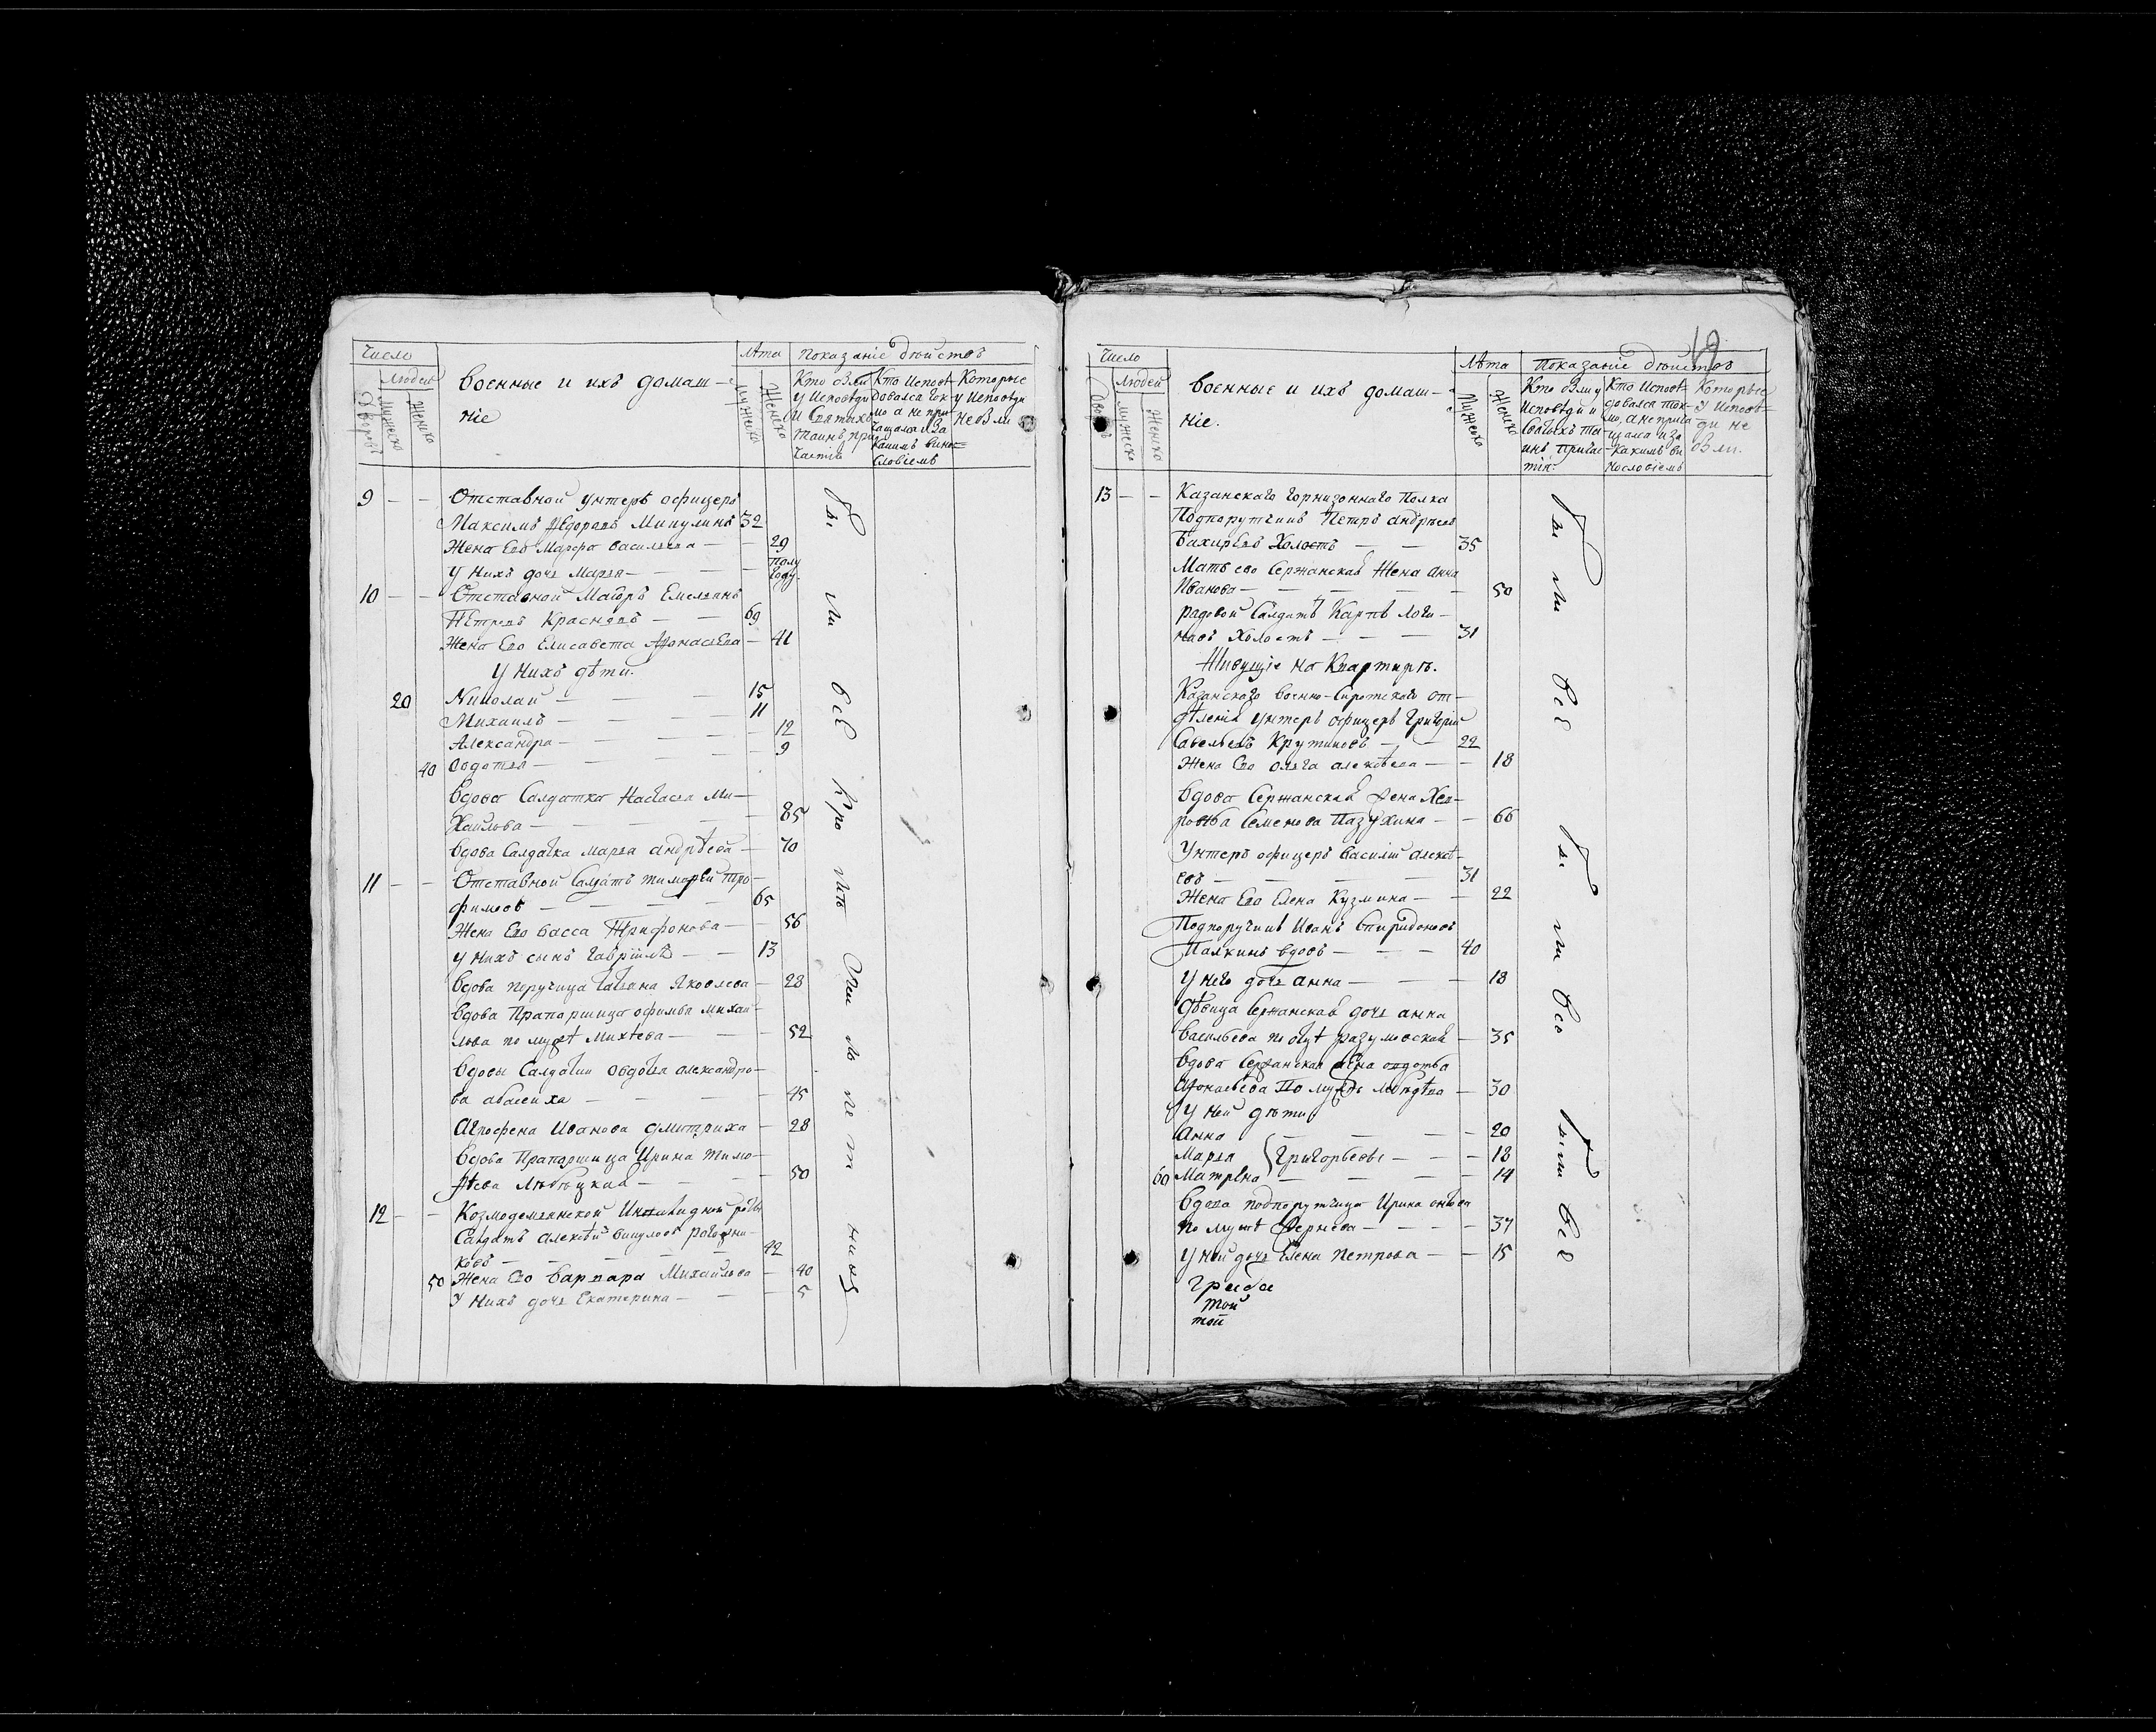 Число
Людей
Дворовъ
Мужеска
Женска
Военные и ихъ домаш-
ніе
лѣта
Мужеска
Женска
Показаніе дѣйствъ
Кто были у Исповѣди и Святыхъ таинъ при
Кто Исповѣдовался ток-мо а не при-
Которые у Исповѣди не были
9 — — Отставной унтеръ офицеръ
Максимъ Ѳедоровъ Микулинъ 32
Жена Его Марфа Васильева — — 29
У Нихъ дочь Марья — — — полу году
10 — — Отставной Маіоръ Емельянъ
Петровъ Красневъ — — 69
Жена Его Елисавета Афонасьева — 41
У Нихъ дѣти.
20 Николай — — 15
Михаилъ — — — 11
Александра — — — — 12
40 Авдотья — — — — 9
Вдова Салдатка Настасья Ми-
хайлова — — — — 85
Вдова Салдатка Марья Андрѣева — 70
11 — — Отставной Салдатъ Тимофей Тро-
фимовъ — — — — 65
Жена Его Васса Трифонова — 56
У Нихъ сынъ Гавріилъ — — 13
Вдова Поручица Татьяна Яковлева — 28
Вдова Прапорщица Офимья Михай-
лова по мужѣ Михѣева — — — 52
Вдовы Салдатки Овдотья Александро-
ва — — — — 45
Агрофена Иванова Дмитриха — 28
Вдова Прапорщица Ирина Тимо-
фѣева — — — 50
12 — — Козмодемьянской Инвалидной роты
Салдатъ Алексѣй
ковъ — — — 42
50 Жена Его Варвара Михайлова — 40
У Нихъ дочь Екатерина — — — 5
Были всѣ
19
Число
Людей
Дворовъ
Мужеска
Женска
Военные и ихъ домаш-
ніе.
Лѣта
Мужеска
Женска
Показаніе дѣйствъ
Кто были у Исповѣди и
Кто Исповѣ-довался ток-мо, а не прича-
Которые у Исповѣ-ди не были.
13 — — Казанскаго Горнизоннаго Полка
Подпорутчикъ Петръ Андрѣевъ
Бахиревъ Холостъ — — 35
Мать его Сержанская Жена Анна
Иванова — — — — — 50
рядовой Салдатъ Карпъ Логи-
новъ Холостъ — — — 31
Живущіе на Квартирѣ.
Казанскаго Военно-Сиротскаго от-
дѣленія унтеръ офицеръ Григорій
Савельевъ Крутиковъ — — 22
Жена Его Ольга Алексѣева — — 18
Вдова Сержанская
Семенова Пазухина — — 66
Унтеръ офицеръ Василій Алексѣ-
евъ — — — — 31
Жена Его Елена Кузмина — — 22
Подпоручикъ Иванъ Спиридоновъ
Палкинъ вдовъ — — — 40
У него дочь Анна — — — 18
Дѣвица Сержанская дочь Анна
Васильева — 35
Вдова Сержанская
Афонасьева По мужѣ — 30
У ней дѣти
Анна — — — — 20
Марья } Григорьевы — — — 18
60 Матрена — — — — 14
Вдова подпорутчица Ирина
по мужѣ — — — — 37
У ней дочь Елена Петрова — — 15
той
той
Были всѣ
Были всѣ
Были всѣ